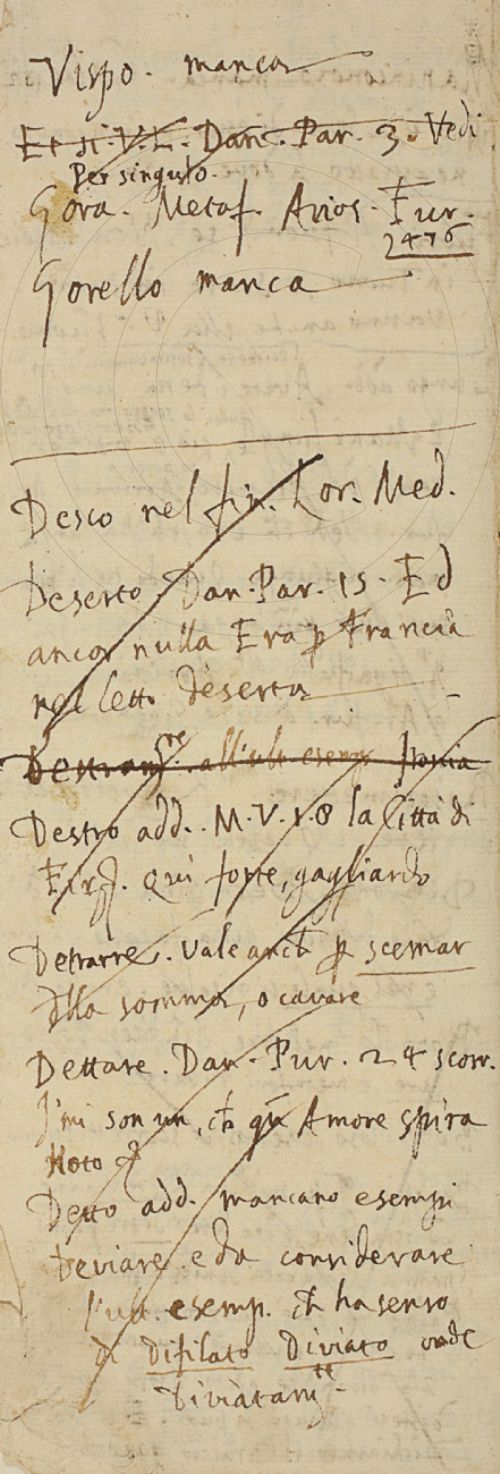 Vispo. manca
Et si. V. L. Dan. Par. 3. Vedi
Per singulo.
Gora. Metaf. Arios. Fur.
2476
Gorello manca
Desco nel fin. Lor. Med.
Deserto. Dan. Par. 15. Ed
ancor nulla Era p Francia
nel letto deserta
all'ult esemp
Destro add. M. V. 1. 8 la Città di
Qui forte, gagliardo
Detrarre. Vale anch p scemar
dlla somma, o cavare
Dettare. Dan. Pur. 24 scorr.
I' mi son un, ch qn Amore spira
Noto &
Detto add. mancano esempi
Deviare. e da considerare
l'ult. esemp. ch ha senso
di Difilato Diviato onde
Diviatamte